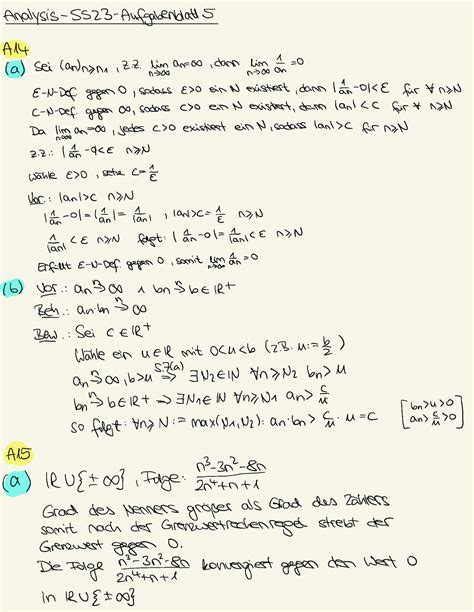 Analysis-SS23-Aufgabenblatt 5
A14
(a) Sei (an)n≥n1, z.z. lim n→∞ an=∞, dann lim n→∞ 1/an=0
E-N-Def. gegen 0, sodass ε>0 ein N existiert, dann |1/an-0|<ε für ∀ n≥N
C-N-Def. gegen ∞, sodass c>0 ein N existiert, dann |an|<c für ∀ n≥N
Da lim n→∞ an=∞, jedes c>0 existiert ein N, sodass |an|>c für n≥N
z.z.: |1/an-0|<ε n≥N
wähle ε>0, setze c=1/ε
Vor.: |an|>c n≥N
|1/an-0|=|1/an|=1/|an|, |an|>c=1/ε n≥N
1/|an|<ε n≥N folgt: |1/an-0|=1/|an|<ε n≥N
Erfüllt E-N-Def. gegen 0, somit lim n→∞ 1/an=0
(b) Vor.: an →n ∞ ∧ bn →n b∈ℝ+
Beh.: an·bn →n ∞
Bew.: Sei c∈ℝ+
Wähle ein u∈ℝ mit 0<u<b (z.B. u:=b/2)
an →n ∞, b>u ⇒ 5.7(a) ∃N2∈ℕ ∀n≥N2 bn>u
bn →n b∈ℝ+ ⇒ ∃N1∈ℕ ∀n≥N1 an>c/u
so folgt: ∀n≥N:=max(N1,N2): an·bn>c/u·u=c [bn>u>0 an>c/u>0]
A15
(a) ℝ∪{±∞}, Folge: n³-3n²-8n/2n⁴+n+1
Grad des Nenners größer als Grad des Zählers
somit nach der Grenzwertrechenregel strebt der
Grenzwert gegen 0.
Die Folge n³-3n²-8n/2n⁴+n+1 konvergiert gegen den Wert 0
in ℝ∪{±∞}